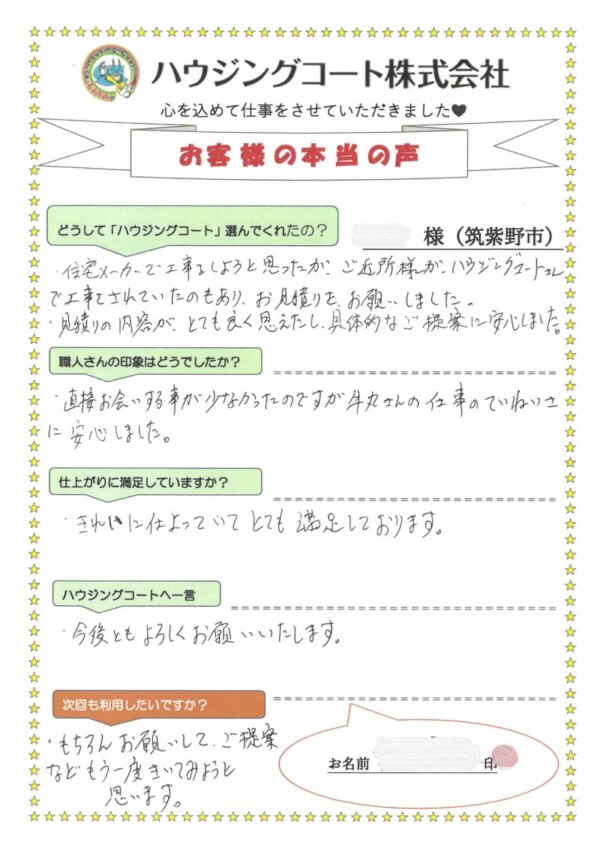 ハウジングコート株式会社
心を込めて仕事をさせていただきました♥
お客様の本当の声
どうして「ハウジングコート」選んでくれたの？
様（筑紫野市）
・住宅メーカーで工事をしようと思ったが、ご近所様が、ハウジングコートさん
で工事をされていたのもあり、お見積りを、お願いしました。
・見積りの内容が、とても良く思えたし、具体的なご提案に安心しました。
職人さんの印象はどうでしたか？
・直接お会いする事が少なかったのですが牛丸さんの仕事のていねいさ
に安心しました。
仕上がりに満足していますか？
・きれいに仕上っていてとても満足しております。
ハウジングコートへ一言
・今後ともよろしくお願いいたします。
次回も利用したいですか？
・もちろんお願いして、ご提案
などもう一度きいてみようと
思います。
お名前 印